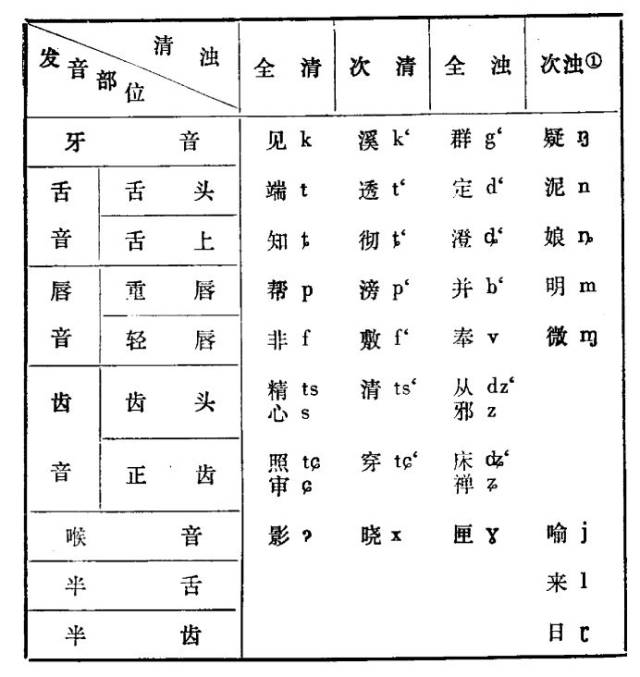 清 浊
发音部位
全 清 次 清 全 浊 次浊①
牙 音 见 k 溪 k‘ 群 g‘ 疑 ŋ
舌音 舌 头 端 t 透 t‘ 定 d‘ 泥 n
舌 上 知 ȶ 彻 ȶ‘ 澄 ȡ‘ 娘 ȵ
唇音 重 唇 帮 p 滂 p‘ 并 b‘ 明 m
轻 唇 非 f 敷 f‘ 奉 v 微 ɱ
齿音 齿 头 精 ts 清 ts‘ 从 dz‘
心 s 邪 z
正 齿 照 tɕ 穿 tɕ‘ 床 dʑ‘
审 ɕ 禅 ʑ
喉 音 影 ʔ 晓 x 匣 ɣ 喻 j
半 舌 来 l
半 齿 日 ɽ